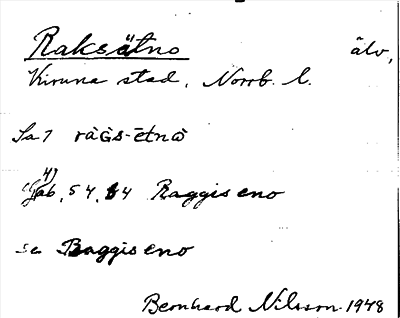 Raksätno älv,
Kiruna stad, Norrb. l.
Sa 7 ràGs-ētnὼ
4)
54, 84 Raggis eno
se Raggis eno
Bernhard Nilsson 1948